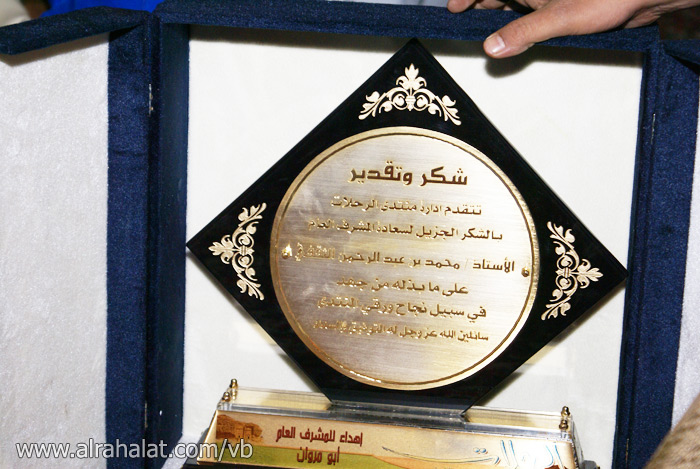 شكر وتقدير
تتقدم ادارة منتدى الرحلات
بالشكر الجزيل لسعادة المشرف العام
الأستاذ / محمد بن عبد الرحمن
على ما بذله من جهد
في سبيل نجاح ورقي المنتدى
سائلين الله عز وجل له التوفيق
اهداء للمشرف العام
أبو مروان
www.alrahalat.com/vb